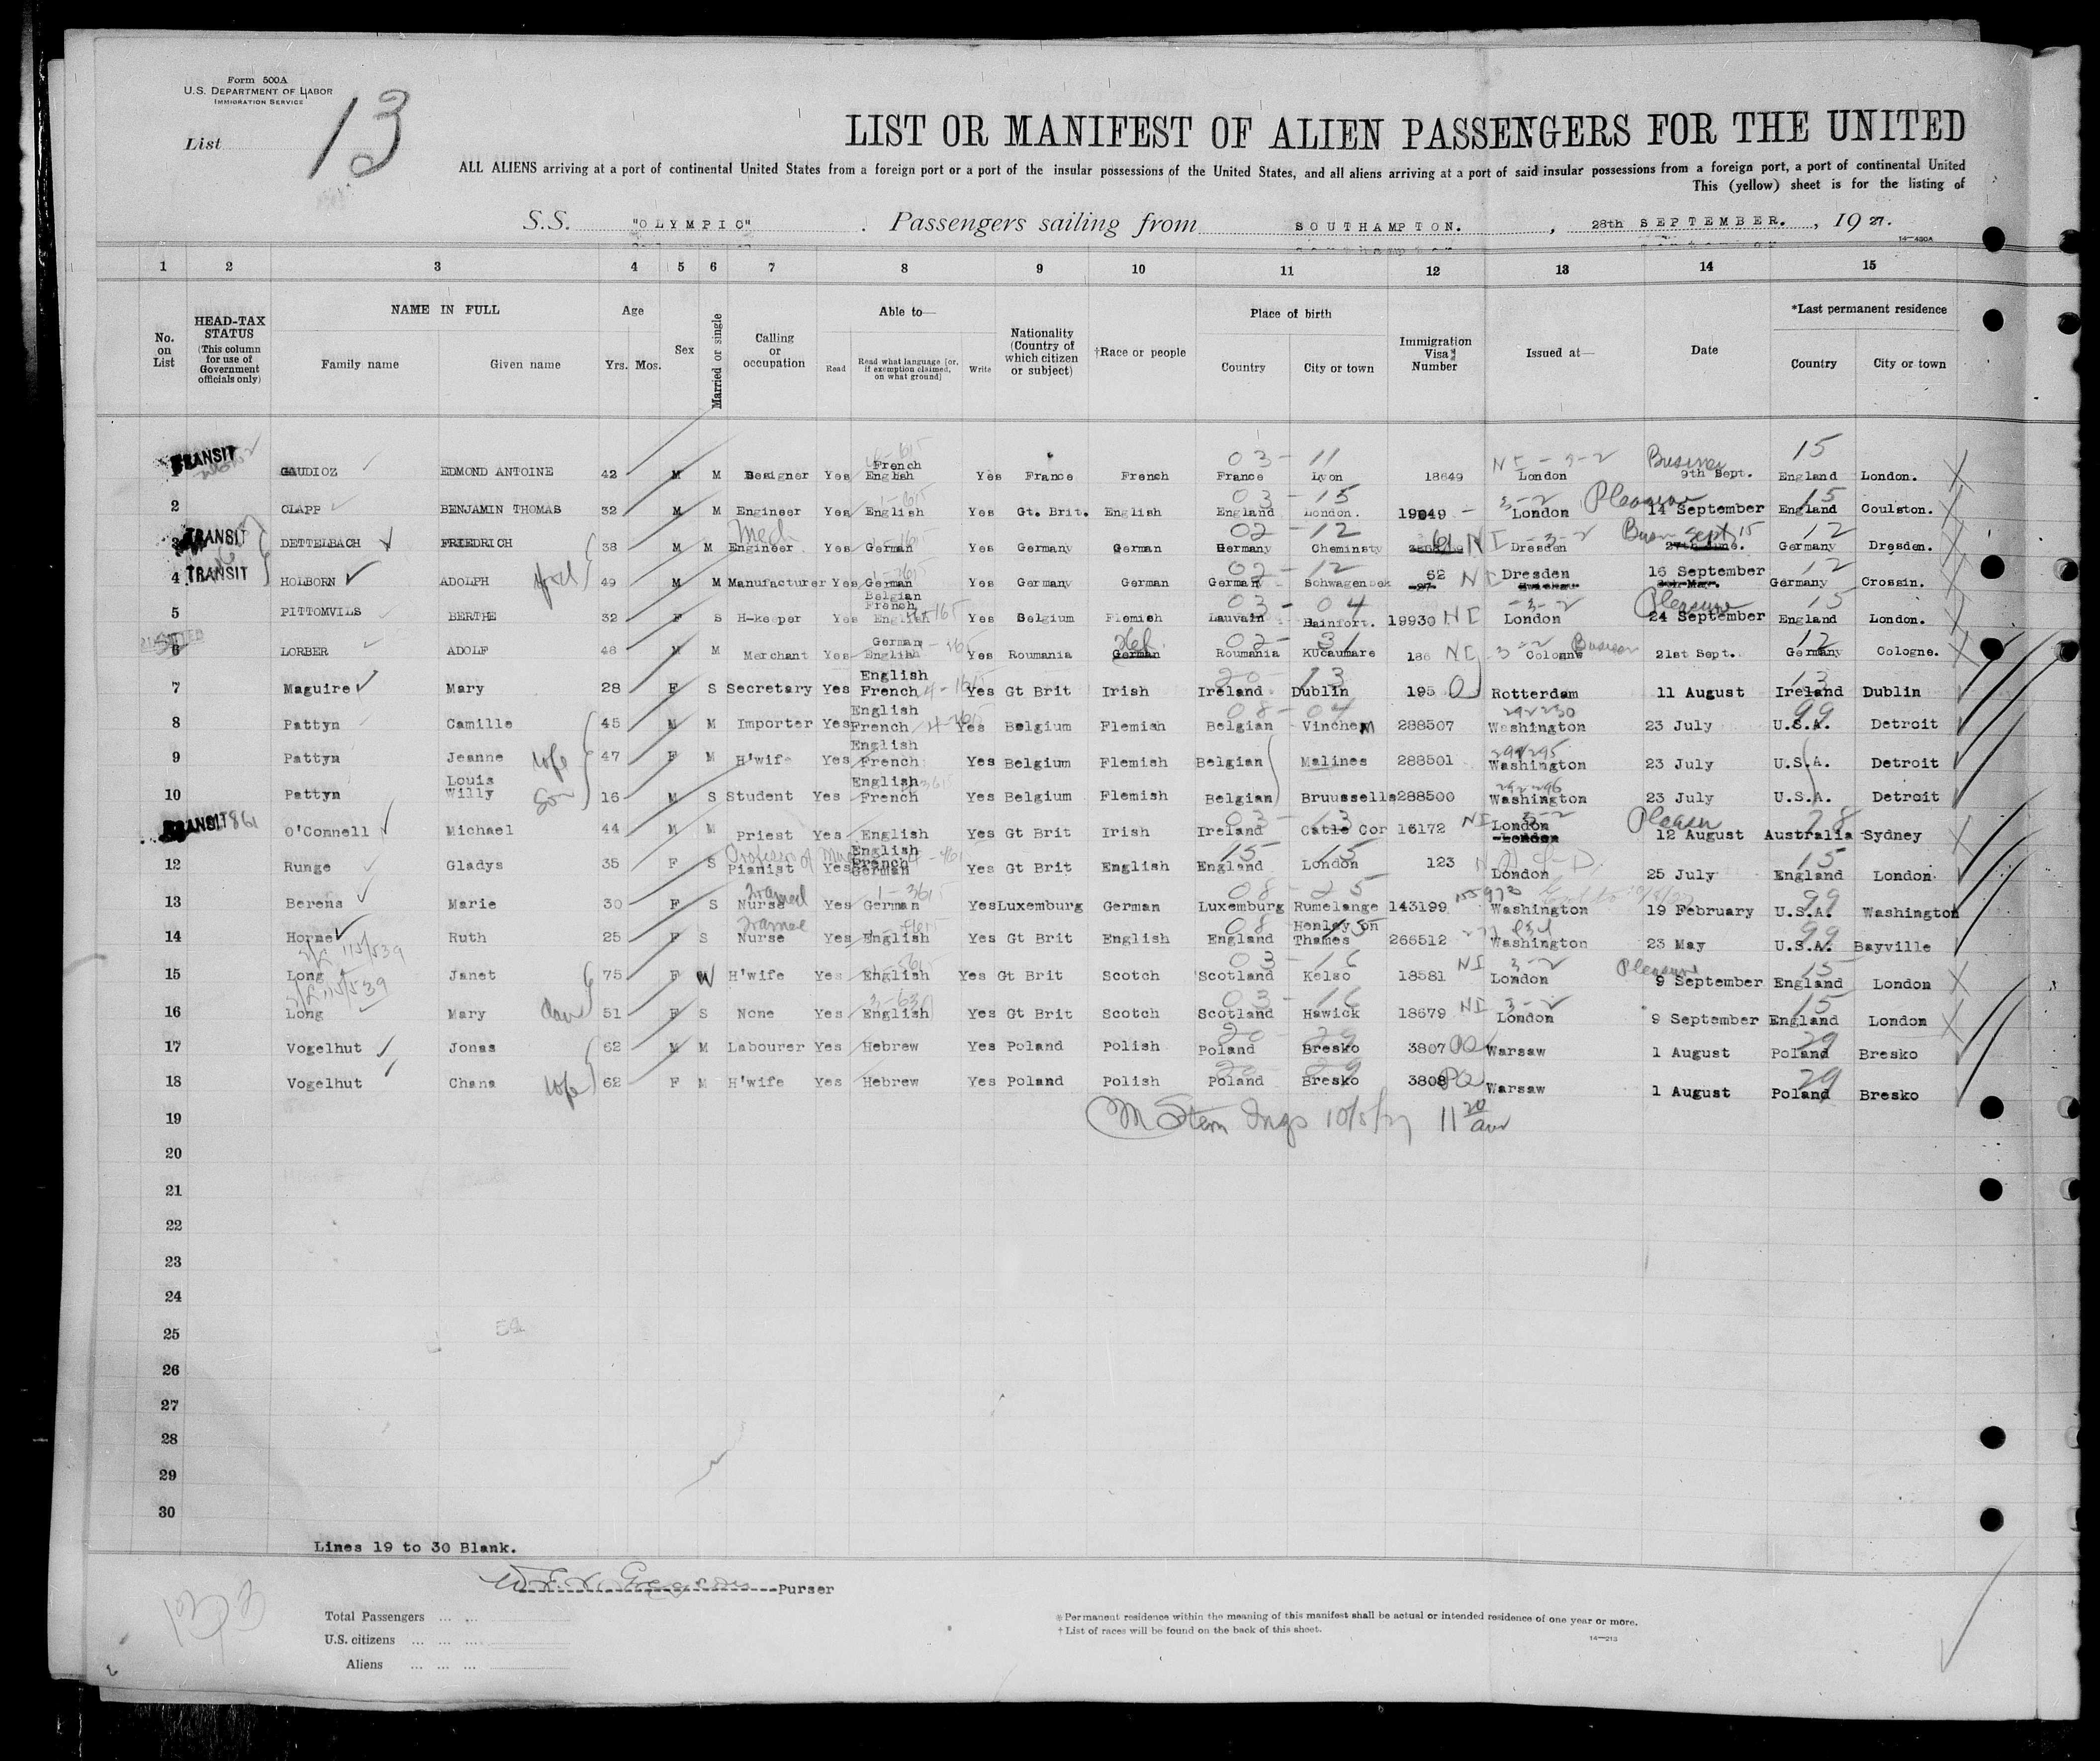 Form 500A
U.S. DEPARTMENT OF LABOR
IMMIGRATION SERVICE
List 13
LIST OR MANIFEST OF ALIEN PASSENGERS FOR THE UNITED
ALL ALIENS arriving at a port of continental United States from a foreign port or a port of the insular possessions of the United States, and all aliens arriving at a port of said insular possessions from a foreign port, a port of continental United
This (yellow) sheet is for the listing of
S.S. "OLYMPIC" . Passengers sailing from SOUTHAMPTON. , 28th SEPTEMBER. , 1927.
14-490A
1 2 3 4 5 6 7 8 9 10 11 12 13 14 15
No. on List
HEAD-TAX STATUS (This column for use of Government officials only)
NAME IN FULL
Family name Given name
Age
Yrs. Mos.
Sex
Married or single
Calling or occupation
Able to—
Read Read what language [or, if exemption claimed, on what ground] Write
Nationality (Country of which citizen or subject)
†Race or people
Place of birth
Country City or town
Immigration Visa Number
Issued at—
Date
*Last permanent residence
Country City or town
TRANSIT GAUDIOZ EDMOND ANTOINE 42 M M Designer Yes French English Yes France French 03-11 France Lyon 18649 London Business 9th Sept. 15 England London. X
2 CLAPP BENJAMIN THOMAS 32 M M Engineer Yes English Yes Gt. Brit. English 03-15 England London. 19049 3-2 London Pleasure 14 September 15 England Coulston. X
3 TRANSIT DETTELBACH FRIEDRICH 38 M M Mech Engineer Yes German Yes Germany German 02-12 Germany Cheminsty 61 NI 3-2 Dresden Sept 15 27th June. 12 Germany Dresden. X
4 TRANSIT HOLBORN ADOLPH 49 M M Manufacturer Yes German Yes Germany German 02-12 German Schwagenbek 62 27 NI Dresden 16 September 12 Germany Crossin. X
5 PITTOMVILS BERTHE 32 F S H-keeper Yes Belgian French English Yes Belgium Flemish 03-04 Lauvain Bainfort. 19930 NI 3-2 London Pleasure 24 September 15 England London. X
6 LORBER ADOLF 48 M M Merchant Yes German English Yes Roumania Heb. German 02-31 Roumania Kucaumare 186 NI 3-2 Cologne Business 21st Sept. 12 Germany Cologne. X
7 Maguire Mary 28 F S Secretary Yes English French Yes Gt Brit Irish 20-13 Ireland Dublin 195 Rotterdam 11 August 13 Ireland Dublin
8 Pattyn Camille 45 M M Importer Yes English French Yes Belgium Flemish 08-04 Belgian Vinchem 288507 292230 Washington 23 July 99 U.S.A. Detroit
9 Pattyn Jeanne wife 47 F M H'wife Yes English French Yes Belgium Flemish Belgian Malines 288501 Washington 23 July U.S.A. Detroit
10 Pattyn Louis Willy Son 16 M S Student Yes English French Yes Belgium Flemish Belgian Bruussells 288500 Washington 23 July U.S.A. Detroit
TRANSIT 861 O'Connell Michael 44 M M Priest Yes English Yes Gt Brit Irish 03-13 Ireland Catle Cor 16172 NI 3-2 London London 12 August 78 Australia Sydney X
12 Runge Gladys 35 F S Professor of Music Pianist Yes English French German Yes Gt Brit English 15 15 England London 123 London 25 July 15 England London
13 Berens Marie 30 F S Trained Nurse Yes German Yes Luxemburg German 08-25 Luxemburg Rumelange 143199 Washington 19 February 99 U.S.A. Washington
14 Horne Ruth 25 F S Trained Nurse Yes English Yes Gt Brit English 08 15 England Henley on Thames 266512 Washington 23 May 99 U.S.A. Bayville
115/539
15 Long Janet 75 F W H'wife Yes English Yes Gt Brit Scotch 03-16 Scotland Kelso 18581 NI 3-2 London Pleasure 9 September 15 England London X
115/539
16 Long Mary dau 51 F S None Yes English Yes Gt Brit Scotch 03-16 Scotland Hawick 18679 NI 3-2 London 9 September 15 England London X
17 Vogelhut Jonas 62 M M Labourer Yes Hebrew Yes Poland Polish 20-29 Poland Bresko 3807 PQ Warsaw 1 August 29 Poland Bresko
18 Vogelhut Chana wife 62 F M H'wife Yes Hebrew Yes Poland Polish 20-29 Poland Bresko 3808 PQ Warsaw 1 August 29 Poland Bresko
19 M Stern Insp 10/5/27 11 20 am
20
21
22
23
24
25
26
27
28
29
30
Lines 19 to 30 Blank.
Purser
Total Passengers ... ...
U.S. citizens ... ... ...
Aliens ... ... ...
* Permanent residence within the meaning of this manifest shall be actual or intended residence of one year or more.
† List of races will be found on the back of this sheet.
14-213